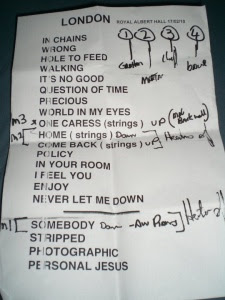 LONDON ROYAL ALBERT HALL 17/02/10
IN CHAINS ① ② ③ ④
WRONG
HOLE TO FEED
WALKING
IT'S NO GOOD
QUESTION OF TIME
PRECIOUS
WORLD IN MY EYES
ONE CARESS (strings) UP
HOME (strings) Down
COME BACK (strings) UP
POLICY
IN YOUR ROOM
I FEEL YOU
ENJOY
NEVER LET ME DOWN
SOMEBODY Down
STRIPPED
PHOTOGRAPHIC
PERSONAL JESUS